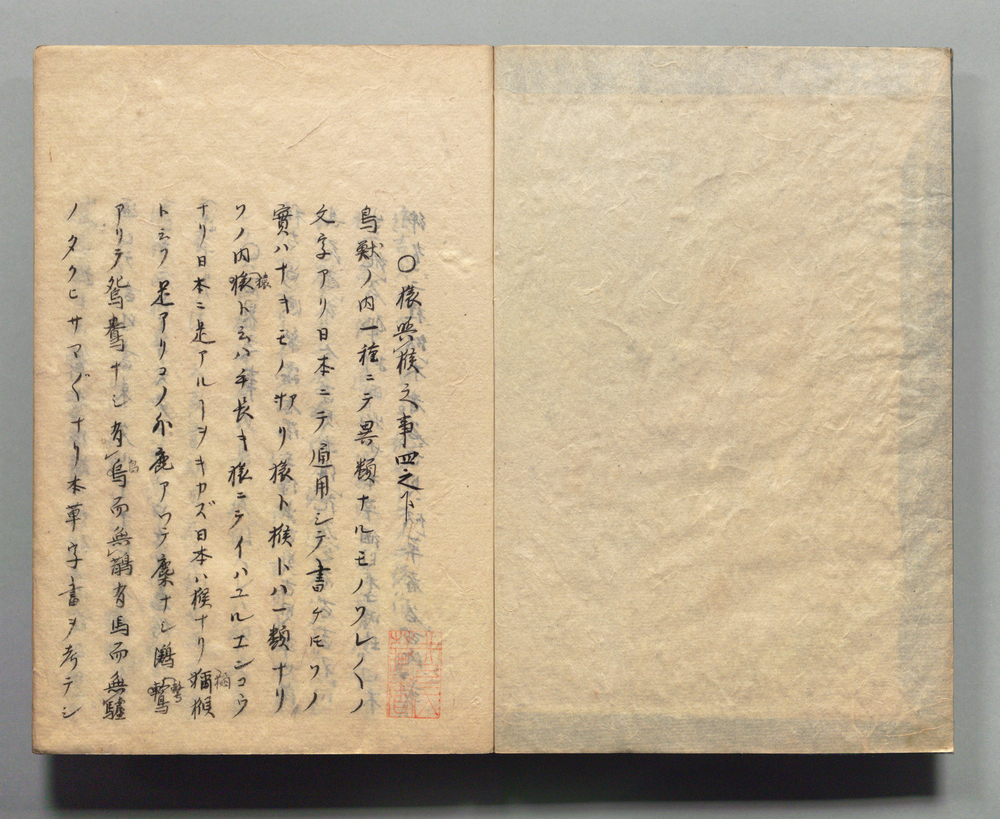 ○猿與猴之事 四之下
鳥獸ノ内一種ニテ異類ナルモノソレ〱ノ
文字アリ日本ニテ通用シテ書ケモソノ
實ハナキモノアリ猿ト猴トハ一類ナリ
ソノ内猿ト云ハ手長キ猿ニテイハユルエンコウ
ナリ日本ニ足アルヿヲキカズ日本ハ猴ナリ獼猴
ト云フ足アリコノ外鹿アツテ麋ナシ鸂鷘
アリテ鴛鴦ナシ有烏而無鵲有馬而無驢
ノタクヒサマ〲ナリ本草字書ヲ考テシ